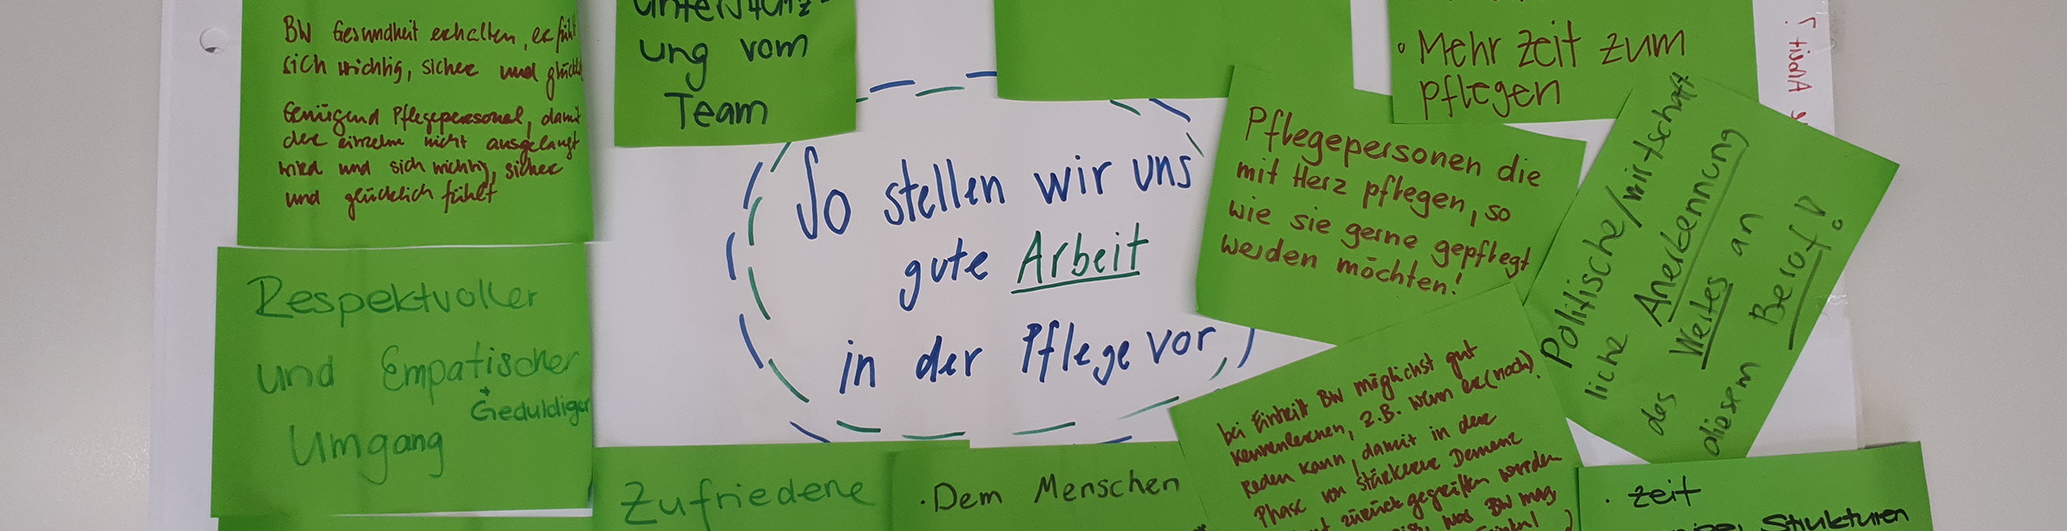 BW Gesundheit erhalten, er fühlt
sich wichtig, sicher und glückl
Genügend Pflegepersonal, damit
der einzelne nicht ausgelaugt
wird und sich wichtig, sicher
und glücklich fühlt
Unterstütz-
ung vom
Team
• Mehr Zeit zum
pflegen
So stellen wir uns
gute Arbeit
in der Pflege vor
Pflegepersonen die
mit Herz pflegen, so
wie sie gerne gepflegt
werden möchten!
Politische/wirtschaft
liche Anerkennung
des Wertes an
diesem Beruf!
Respektvoller
und Empatischer
+ Geduldiger
Umgang
Zufriedene
• Dem Menschen
bei Eintritt BW möglichst gut
kennenlernen, z.B. wenn er (noch)
reden kann, damit in der
Phase von stärkerer Demenz
zurück gegriffen werden
was BW mag
• Zeit
Strukturen